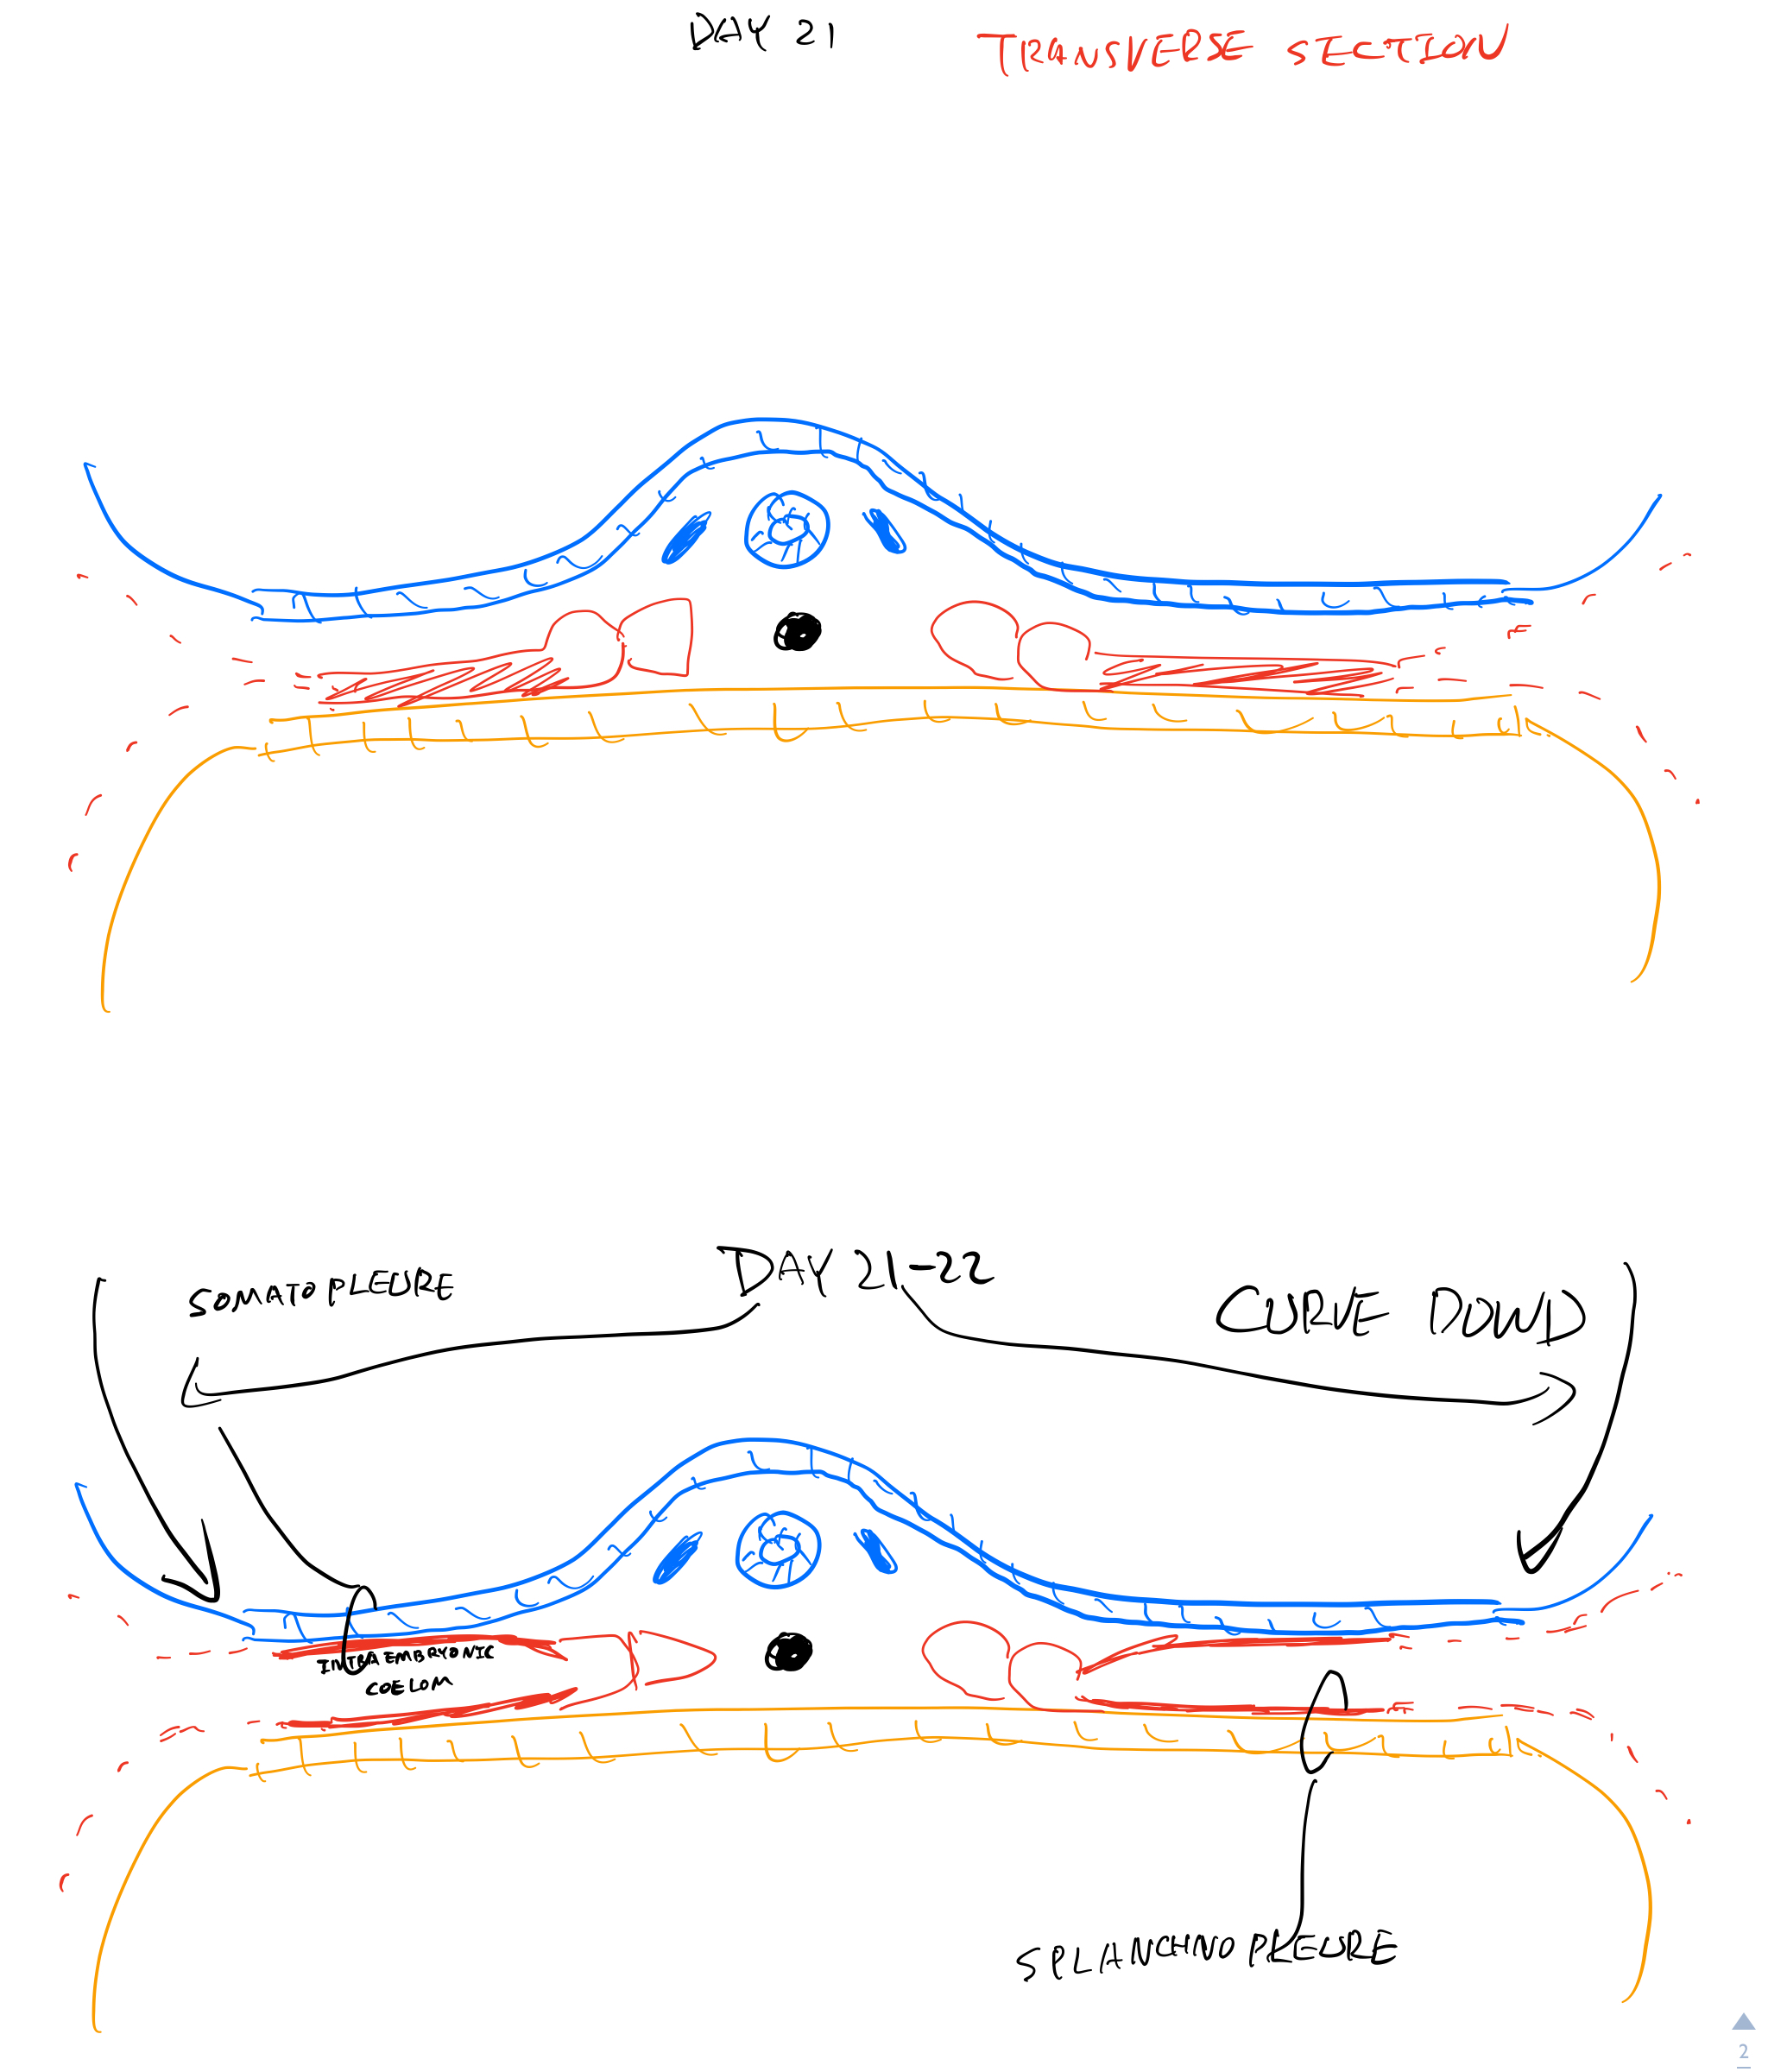 DAY 21
TRANSVERSE SECTION
DAY 21-22
SOMATOPLEURE
CURVE DOWN
INTRAEMBRYONIC
COELOM
SPLANCHNOPLEURE
2